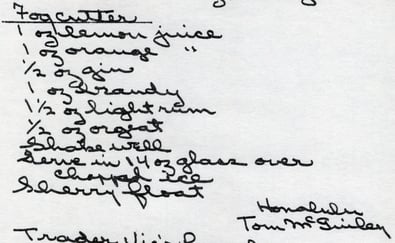 Fogcutter
1 oz lemon juice
1 oz orange "
1/2 oz gin
1 oz brandy
1 1/2 oz light rum
1/2 oz orgeat
Shake well
Serve in 14 oz glass over
chopped ice
Sherry float
Honolulu
Tom McGinley
Trader Vic's